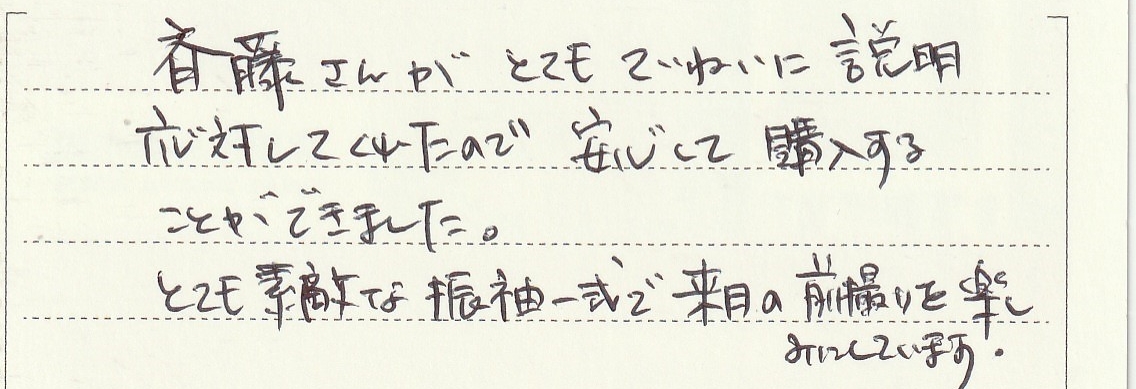 斉藤さんが とても ていねいに 説明
応対してくれたので 安心して 購入する
ことができました。
とても素敵な 振袖一式で 来月の 前撮りを 楽し
みにしています.